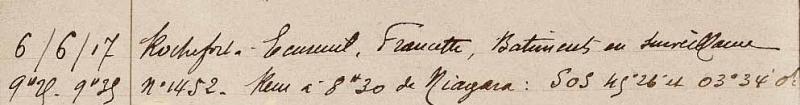 6/6/17 Rochefort - Ecureuil, Francette, Batiments en surveillance
9h25 - 9h35 n° 1452 - Recu à 8h30 de Niagara : SOS 45°26 et 03°34 O